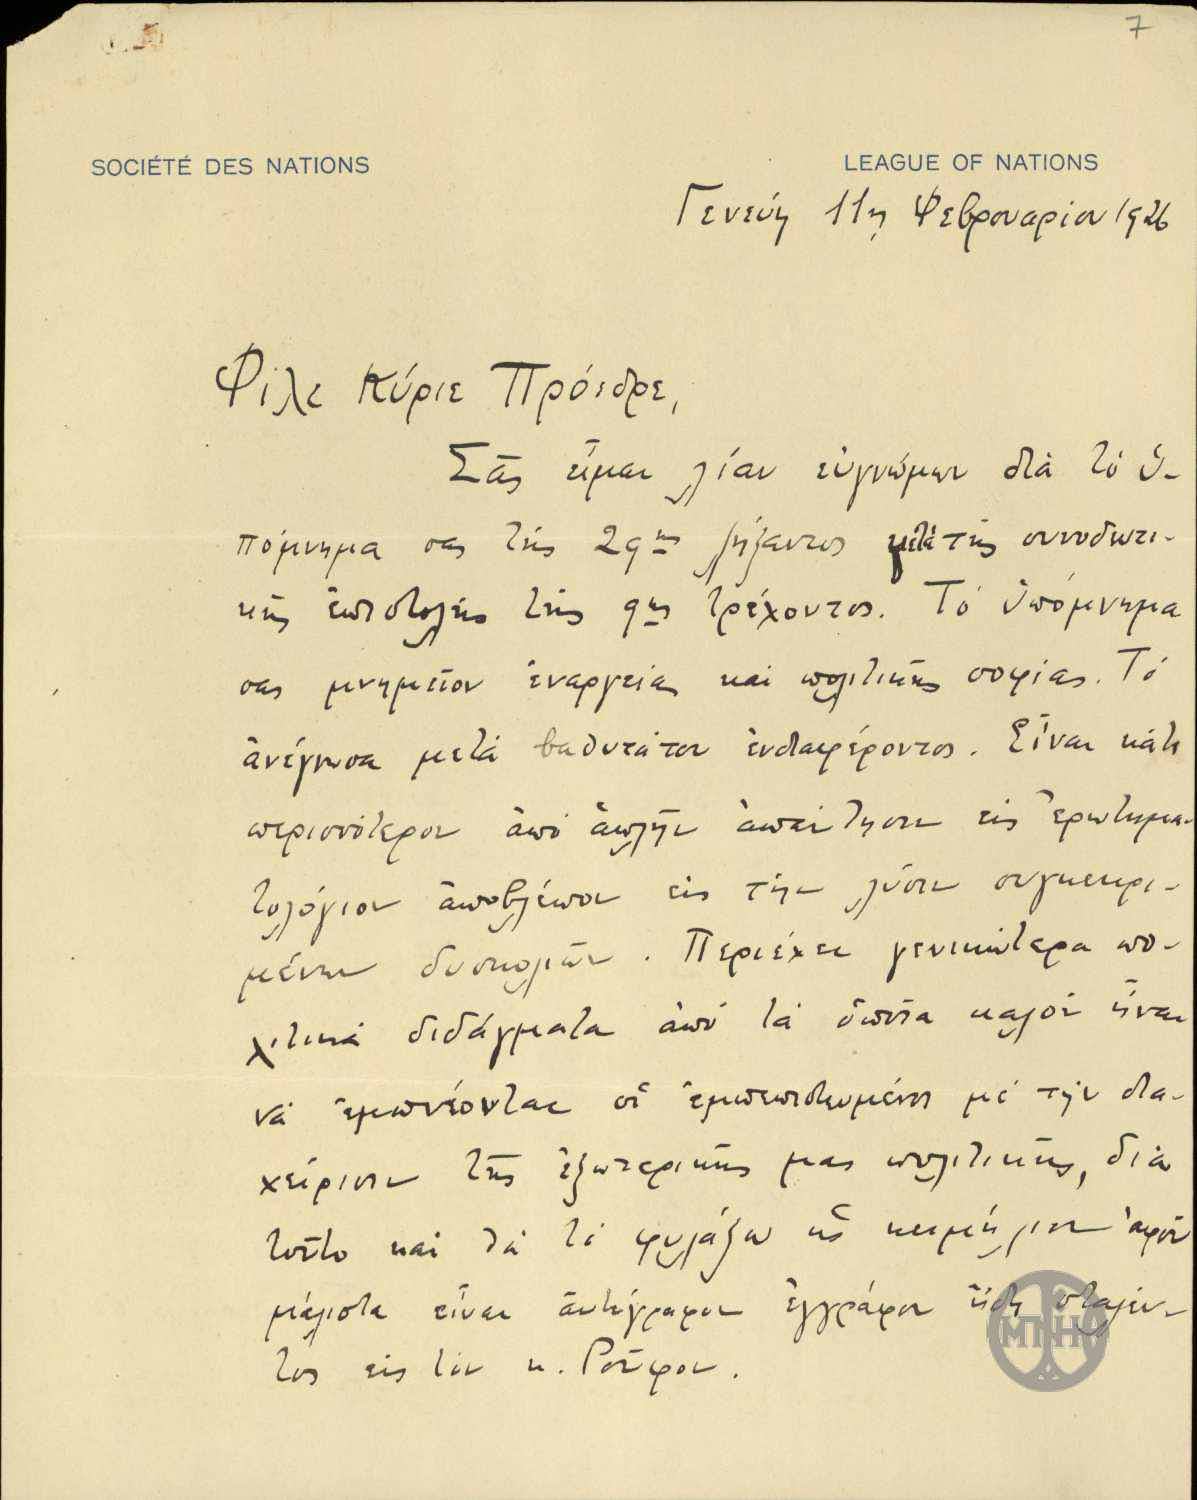 7
SOCIÉTÉ DES NATIONS
LEAGUE OF NATIONS
Γενεύη 11η Φεβρουαρίου 1926
Φίλε Κύριε Πρόεδρε,
Σᾶς εἶμαι λίαν εὐγνώμων διὰ τὸ ὑ-
πόμνημα σας τῆς 29ης λήξαντος μετὰ τῆς συνοδωτι-
κῆς ἐπιστολῆς τῆς 9ης τρέχοντος. Τὸ ὑπόμνημα
σας μνημεῖον ἐναργείας καὶ πολιτικῆς σοφίας. Τὸ
ἀνέγνωσα μετὰ βαθυτάτου ἐνδιαφέροντος. Εἶναι κάτι
περισσότερον ἀπὸ ἁπλῆν ἀπάντησιν εἰς ἐρωτημα-
τολόγιον ἀποβλέπον εἰς τὴν λύσιν συγκεκρι-
μένων δυσκολιῶν. Περιέχει γενικώτερα πο-
λιτικὰ διδάγματα ἀπὸ τὰ ὁποῖα καλὸν εἶναι
νὰ ἐμπνέονται οἱ ἐμπεπιστευμένοι μὲ τὴν δια-
χείρισιν τῆς ἐξωτερικῆς μας πολιτικῆς, διὰ
τοῦτο καὶ θὰ τὸ φυλάξω ὡς κειμήλιον ἀφοῦ
μάλιστα εἶναι ἀντίγραφον ἐγγράφου ἤδη σταλέν-
τος εἰς τὸν κ. Ροῦφον.
ΜΠΗ